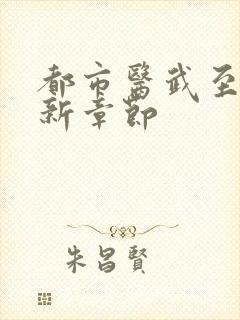 都市醫武至
新章節
朱昌賢